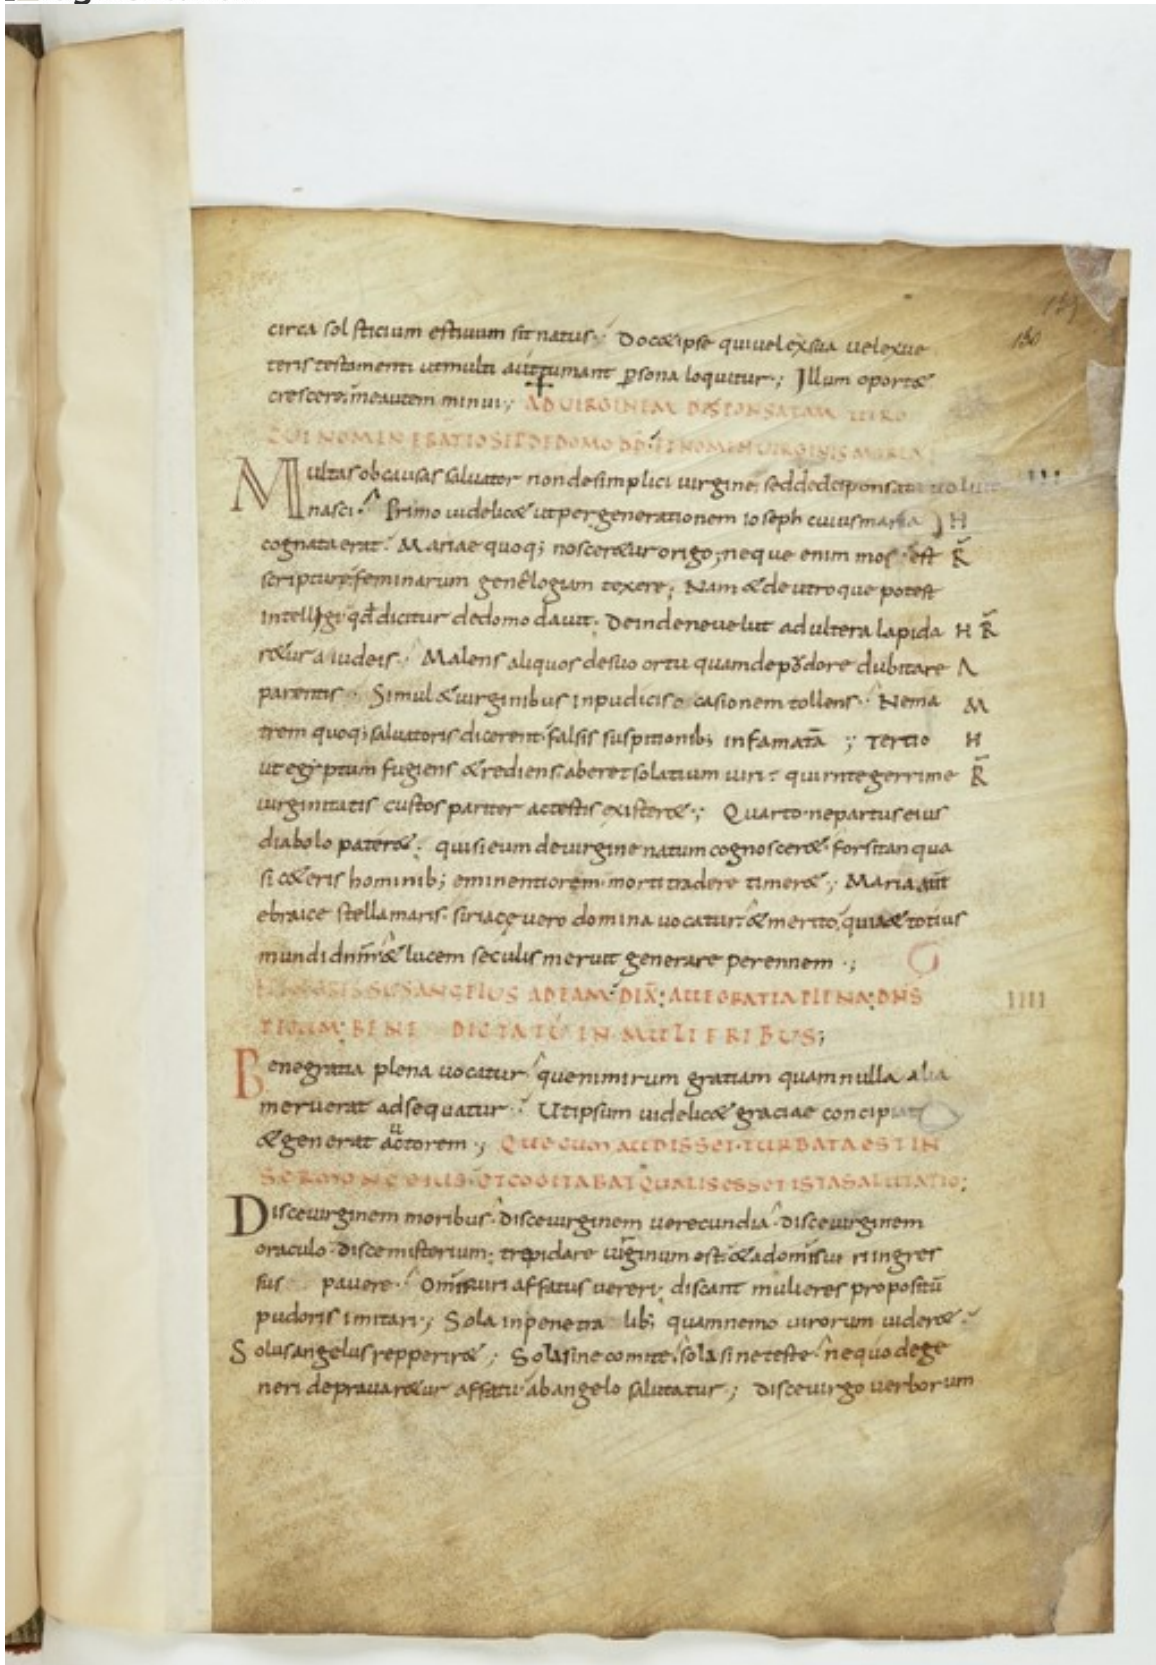 159
160
circa solsticium estiuum sit natus. Docet ipse qui uel ex sua uel ex ue
teris testamenti ut multi autumant persona loquitur; Illum oportet
crescere. me autem minui; AD UIRGINEM DISPONSATAM UIRO
CUI NOMEN ERAT IOSEP DE DOMO DD. ET NOMEN UIRGINIS MARIA;
Multas ob causas saluator non de simplici uirgine. sed de disponsata uoluit III
nasci. Primo uidelicet ut per generationem ioseph cuius maria H
cognata erat. Mariae quoq; nosceretur origo; neque enim mos est R̄
scripture feminarum genelogiam texere; Nam & de utroque potest
intelligi qd̄ dicitur de domo dauit. Deinde ne uelut adultera lapida H R̄
retur a iudeis. Malens aliquos de suo ortu quam de pudore dubitare A
parentis. Simul & uirginibus inpudicis ocasionem tollens. Ne ma M
trem quoq; saluatoris dicerent falsis suspitionib; infamatā; Tertio H
ut egyptum fugiens & rediens. aberet solatium uiri. qui integerrime R̄
uirginitatis custos pariter ac testis existeret; Quarto ne partus eius
diabolo pateret; qui si eum de uirgine natum cognosceret. forsitan qua
si ceteris hominib; eminentiorem. morti tradere timeret; Maria aut̄
ebraice stella maris. siriace uero domina uocatur. & merito. quia & totius
mundi dnm̄ & lucem seculis meruit generare perennem;
INGRESSUS ANGELUS AD EAM DIX̄; AUE GRATIA PLENA; DNS̄ IIII
TECUM; BENEDICTA TU IN MULIERIBUS;
Bene gratia plena uocatur. que nimirum gratiam quam nulla alia
meruerat adsequatur. Ut ipsum uidelicet graciae concipiat
& generat auctorem; QUE CUM AUDISSET. TURBATA EST IN
SERMONE EIUS. ET COGITABAT QUALIS ESSET ISTA SALUTATIO;
Disce uirginem moribus. disce uirginem uerecundia. disce uirginem
oraculo. disce misterium. trepidare uirginum est. & ad omnis uiri ingres
sus pauere. Omnis uiri affatus uereri. discant mulieres propositū
pudoris imitari; Sola in penetralib; quam nemo uirorum uideret.
Solus angelus repperiret; Sola sine comite. sola sine teste. ne quo dege
neri deprauaretur affatu. ab angelo salutatur; disce uirgo uerborum